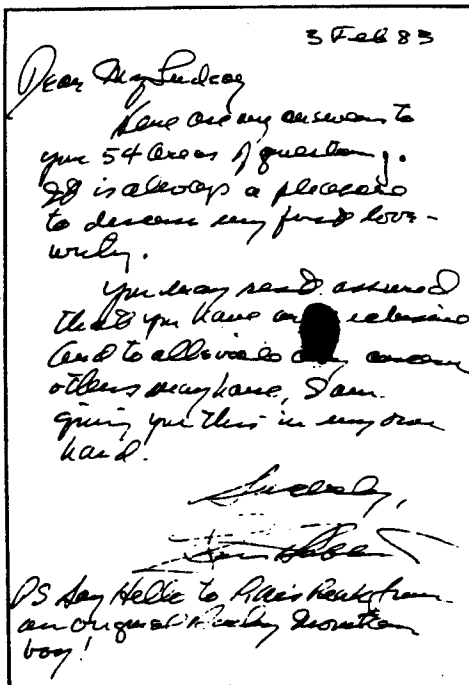 3 Feb 83
Dear Mr Lindsay
Here are my answers to
your 54 areas of questioning.
It is always a pleasure
to discuss my first love -
writing.
You may rest assured
that you have an exclusive
and to alleviate any concern
others may have, I am
giving you this in my own
hand.
Sincerely,
PS Say Hello to Pikes Peak from
an original Rocky Mountain
boy!